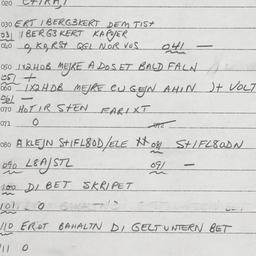 020
030 ERT IBERGSKERT DEM TIST
031 IBERGSKERT KAPOER
040 O, K, RST QSL NOR VOS 041 —
050 1X2HDB MEJRE A DOS ET BALD FALN
051 +
060 1X2HDB MEJRE CU GEJN AHIN )+ VOLT
061 —
070 HOT IR STEN FARIXT
071 O
080 A KLEJN STIFL80D/ELE 081 STIFL80DN
090 L8A/STL 091 —
100 DI BET SKRIPET
101 O
110 EROT BAHALTN DI GELT UNTERN BET
111 O